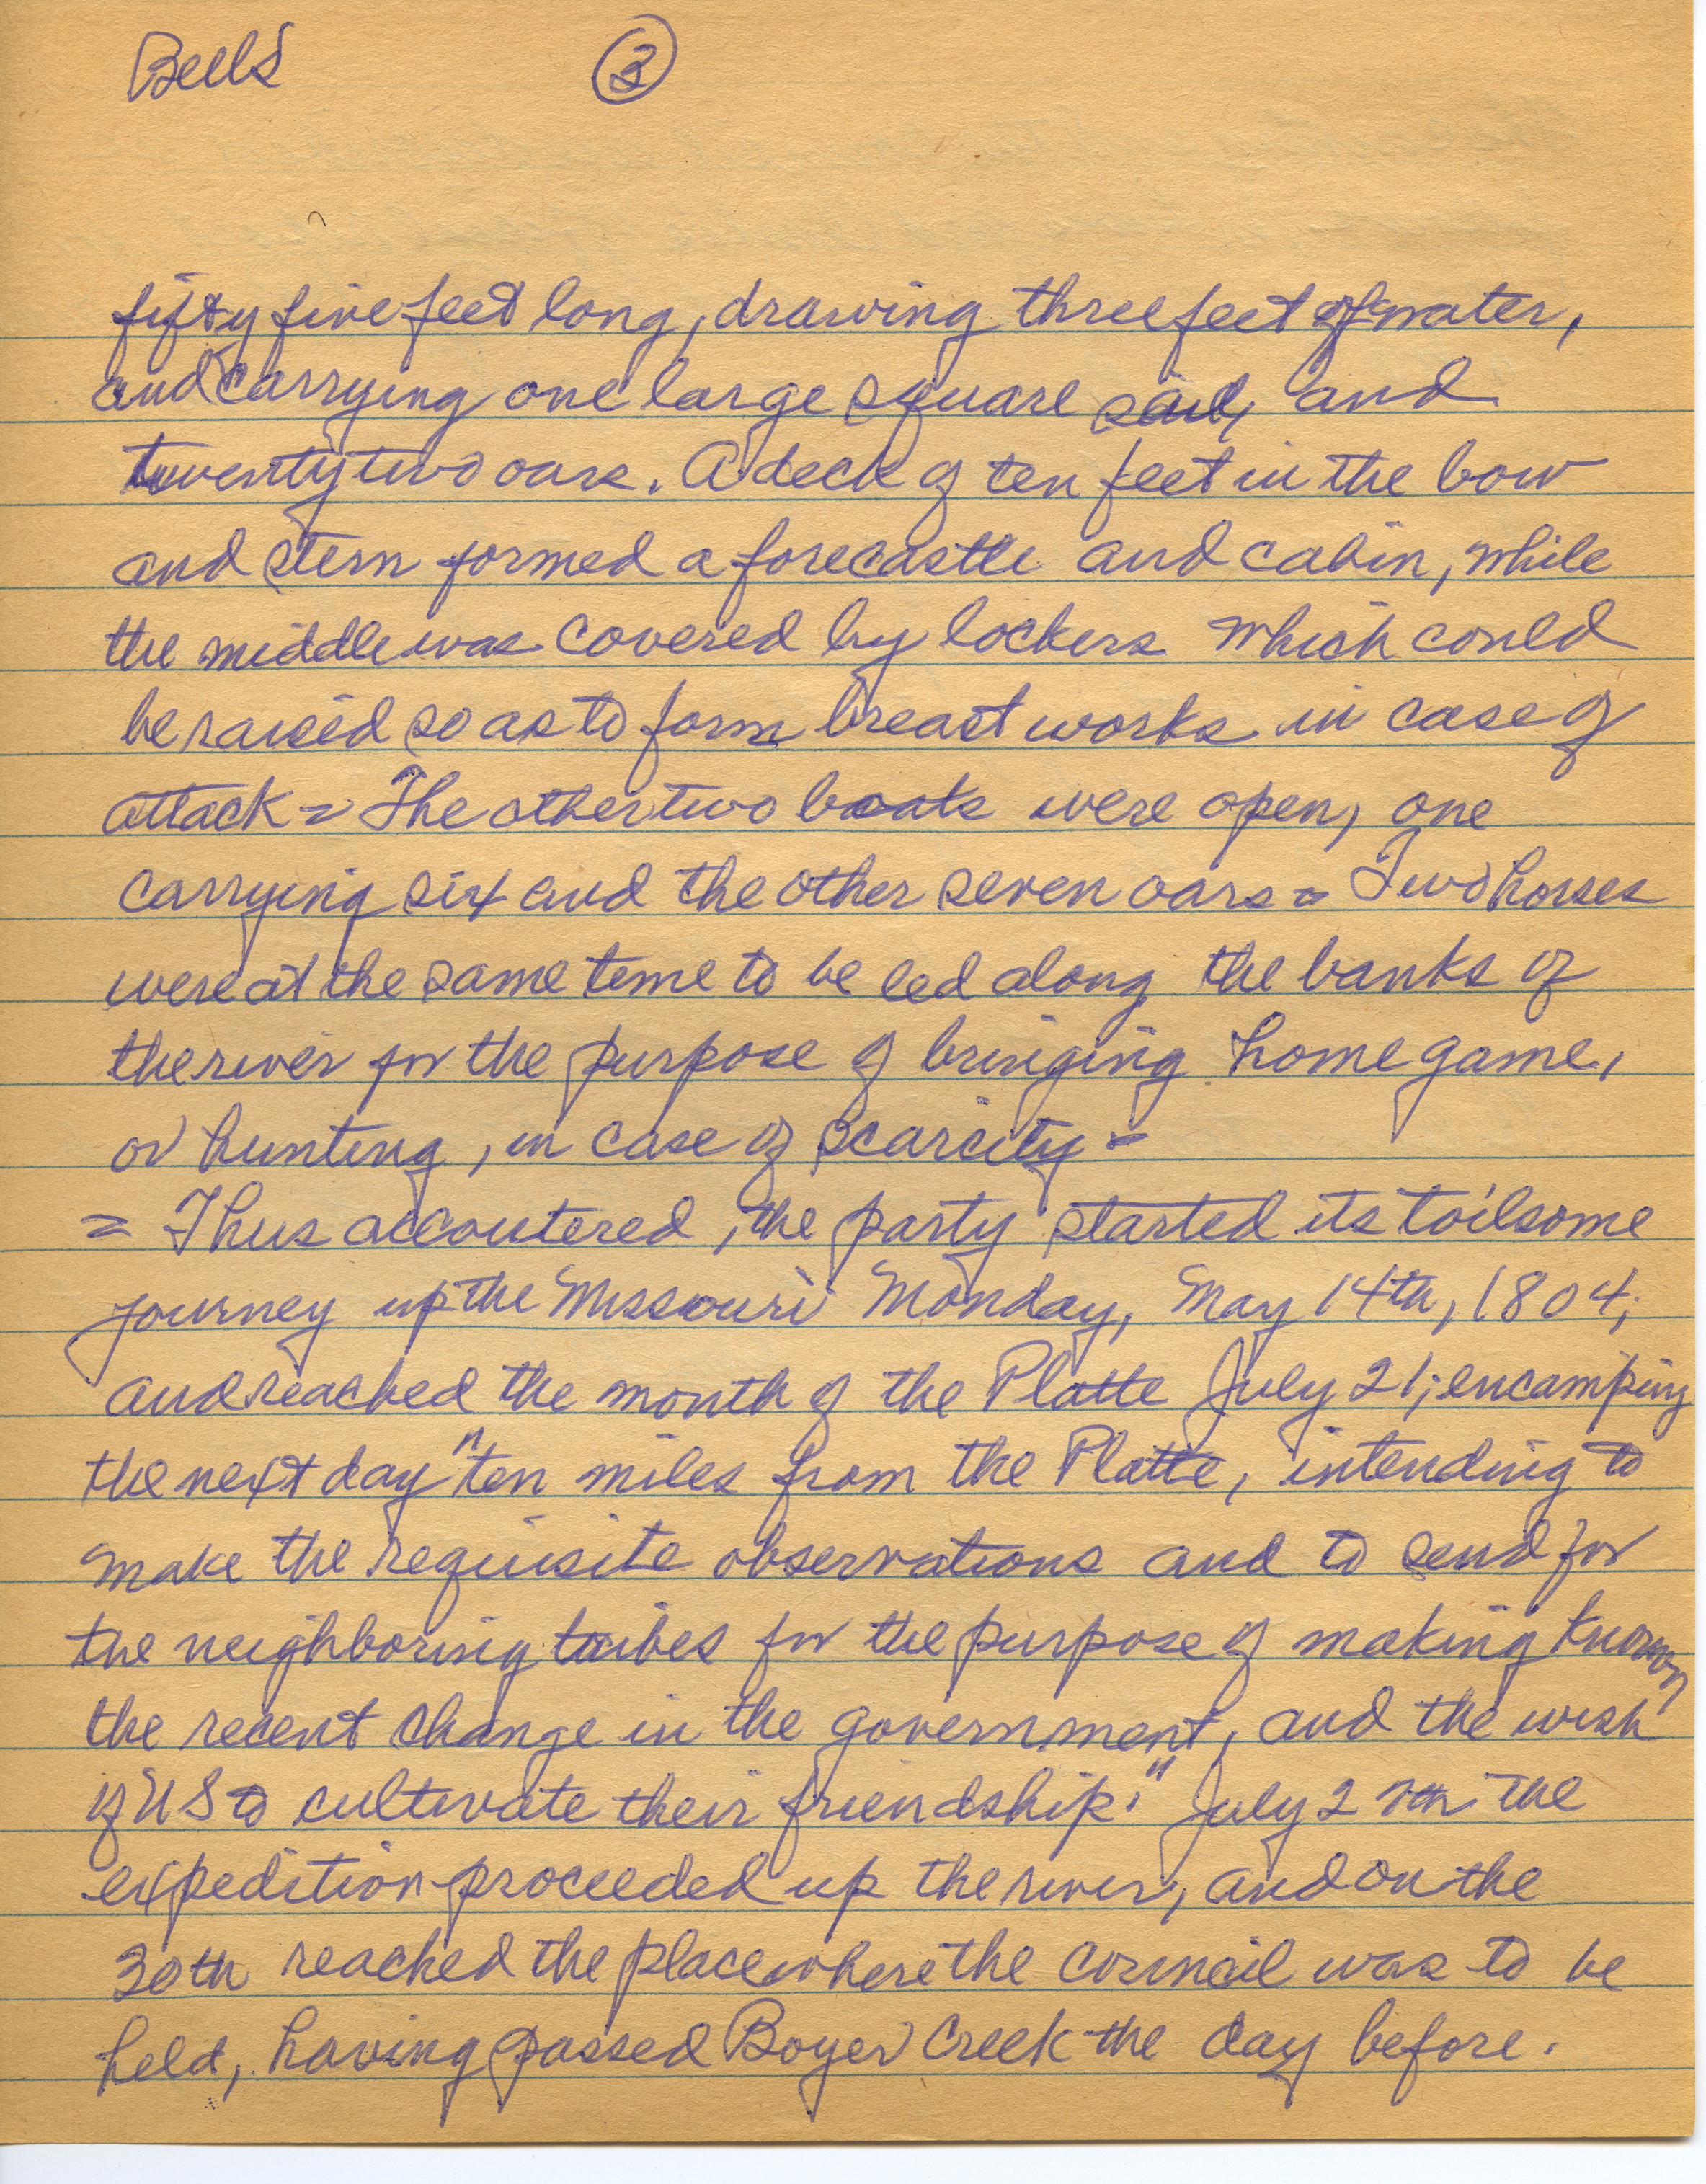 Bells ③
fifty five feet long, drawing three feet of water,
and carrying one large square sail, and
twenty two oars. A deck of ten feet in the bow
and stern formed a forecastle and cabin, while
the middle was covered by lockers which could
be raised so as to form breast works in case of
attack = The other two boats were open, one
carrying six and the other seven oars = Two horses
were at the same time to be led along the banks of
the river for the purpose of bringing home game,
or hunting, in case of scarcity =
= Thus accoutered, the party started its toilsome
journey up the Missouri Monday, May 14th, 1804;
and reached the mouth of the Platte July 21; encamping
the next day "ten miles from the Platte, intending to
make the requisite observations and to send for
the neighboring tribes for the purpose of making known
the recent change in the government, and the wish
of US to cultivate their friendship." July 27th the
expedition proceeded up the river, and on the
30th reached the place where the council was to be
held, having passed Boyer Creek the day before.